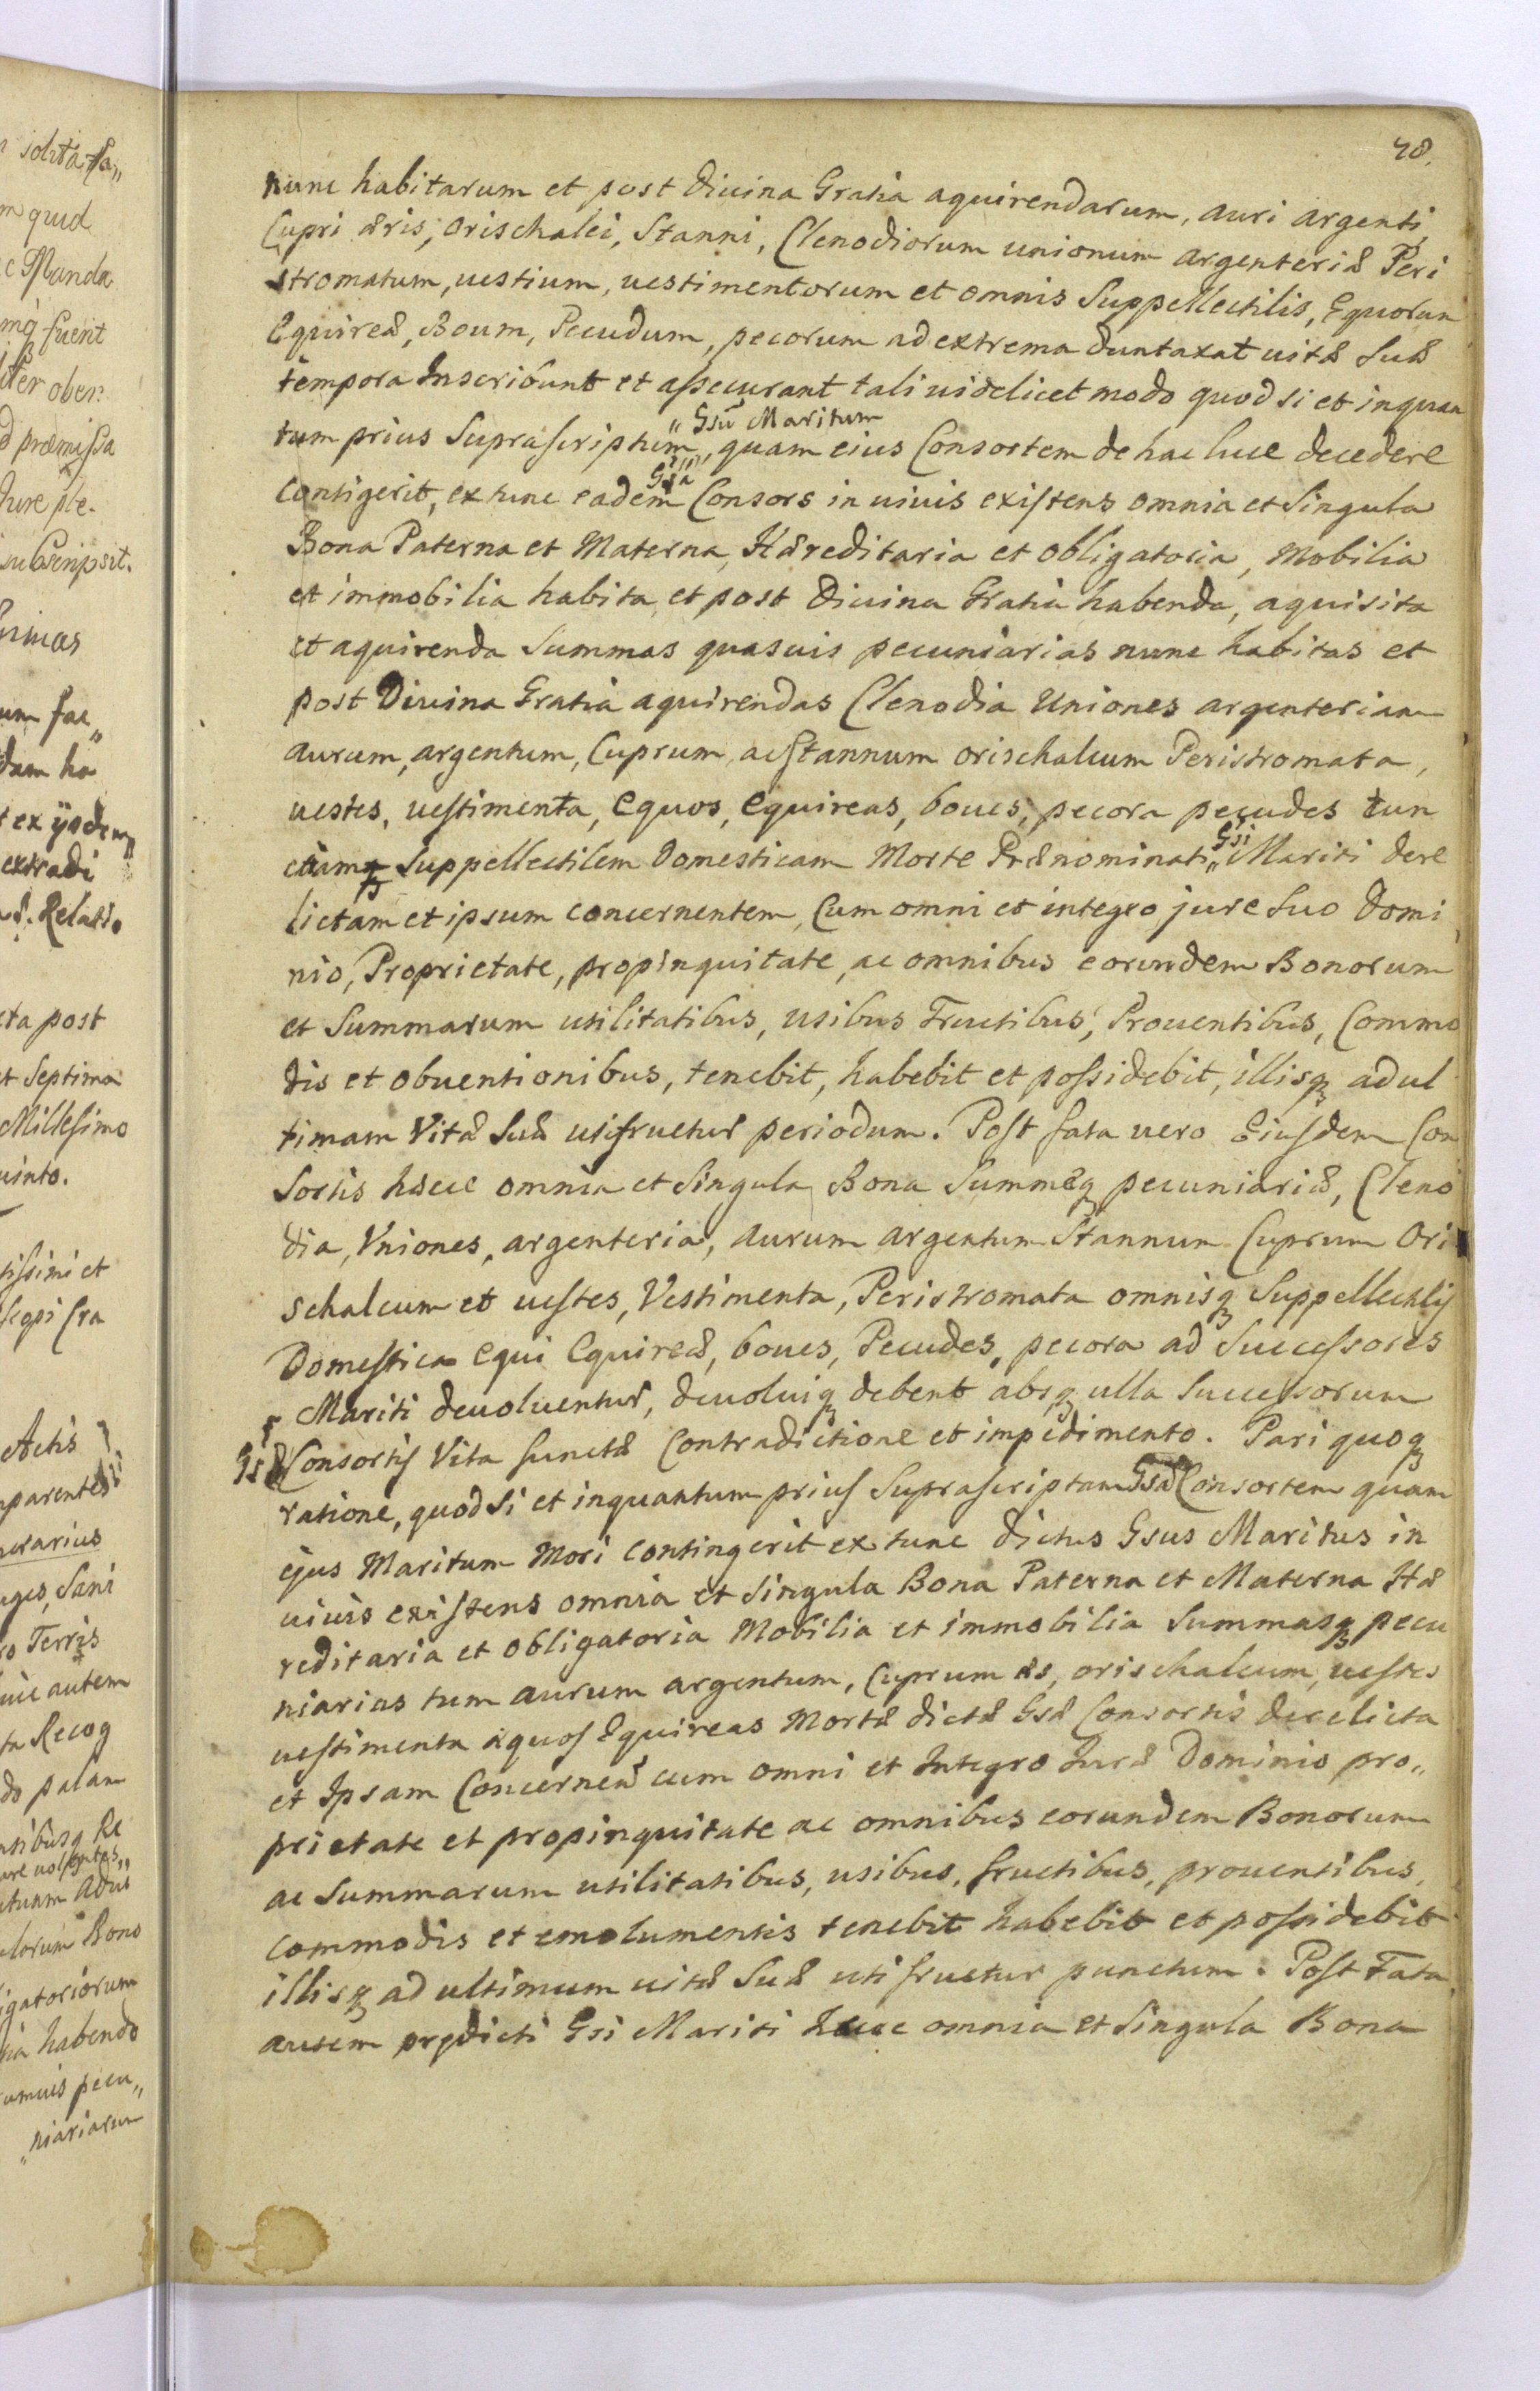 48.
nunc habitarum et post divina Gratia aquirendarum, auri argenti,
Cupri æris, orischalci, Stanni, Clenodiorum unionum argenteriæ Peri
stromatum, uestium, uestimentorum et omnis Suppellectilis, Equorum
Equireæ, Boum, Pecudum, pecorum ad extrema duntaxat uitæ Suæ
tempora Inscribunt et assecurant tali uidelicet modo quod si et inquan
tum prius Suprascriptum " Gsū Maritum, quam eius Consortem de hac luce decedere
Contigerit, ex tunc eadem Gsa Consors in uiuis existens omnia et Singula
Bona Paterna et Materna, Hæreditaria et obligatoria, Mobilia
et immobilia habita, et post Diuina Gratia habenda, aquisita
et aquirenda Summas quasuis pecuniarias nunc habitas et
post Diuina Gratia aquirendas Clenodia Uniones argenteriam
aurum, argentum, Cuprum, aes Stannum orischalcum Peristromata,
uestes, uestimenta, equos, equireas, boues, pecora pecudes tun
etiamq Suppellectilem Domesticam Morte Prænominati " Gsi Mariti dere
lictam et ipsum concernentem, Cum omni et integro jure Suo Domi
nio, Proprietate, propinquitate, ac omnibus eorundem Bonorum
et Summarum utilitatibus, usibus Fructibus, Prouentibus, Commo
dis et obuentionibus, tenebit, habebit et possidebit, illisq ad ul
timam Vitæ Suæ utifruetur periodum. Post fata uero Eiusdem Con
Sortis hæcce omnia et Singula Bona Summæq pecuniariæ, Cleno
dia, Vniones, argenteria, aurum argentum Stannum Cuprum Ori
schalcum et uestes, Vestimenta, Peristromata omnisq Suppellectilis
Domestica equi Equireæ, boues, Pecudes, pecora ad Successores
Mariti deuoluentur, deuoluiq debent absq ulla Successorum
Gsæ Consortis Vita functæ Contradictione et impedimento. Pari quoq
ratione, quod Si et inquantum prius Suprascriptam Gsā Consortem quam
ejus Maritum Mori contingerit ex tunc dictus Gsus Maritus in
uiuis existens omnia et Singula Bona Paterna et Materna Hæ
reditaria et obligatoria Mobilia et immobilia Summasq pecu
niarias tum aurum argentum, Cuprum æs, orischalcum, uestes
uestimenta æquos Equireas Mortæ dictæ Gsæ Consortis derelicta
et Ipsam Concerneñ cum omni et Integro Juræ Dominio pro„
prietate et propinquitate ac omnibus eorundem Bonorum
ac Summarum utilitatibus, usibus, fructibus, prouentibus,
commodis et emolumentis tenebit habebit et possidebit
illisq ad ultimum uitæ Suæ utifruetur punctum. Post Fata
autem prædicti Gsi Mariti hæcce omnia et Singula Bona